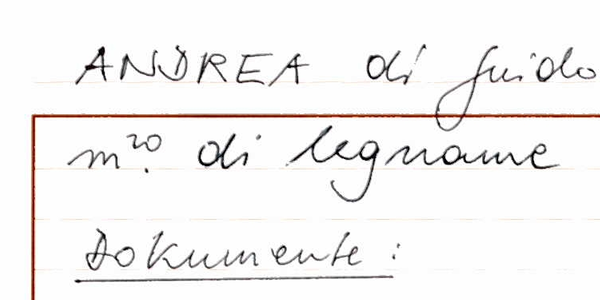 ANDREA di Guido
m.²⁰ di legname
Dokumente: